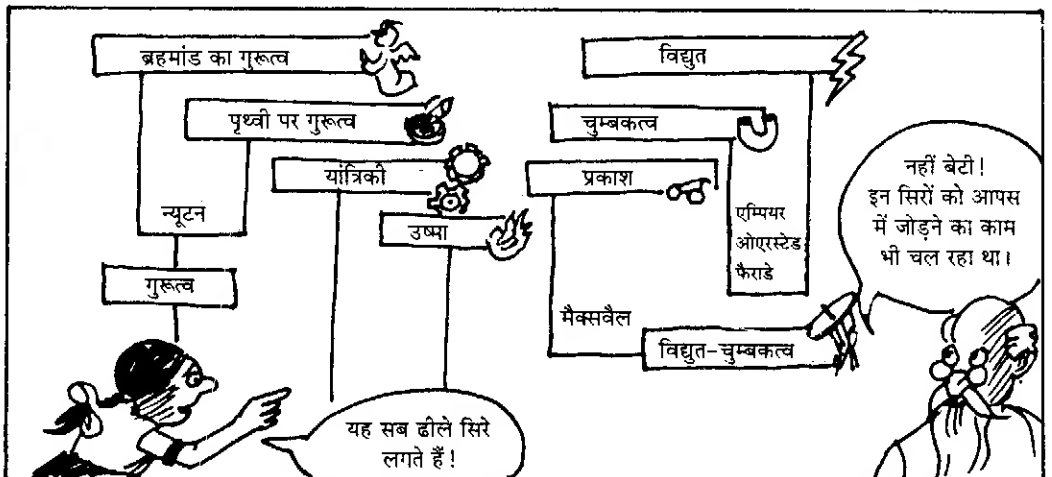 ब्रहमांड का गुरूत्व
पृथ्वी पर गुरूत्व
यांत्रिकी
उष्मा
न्यूटन
गुरूत्व
विद्युत
चुम्बकत्व
प्रकाश
एम्पियर
ओएरस्टेड
फैराडे
मैक्सवैल
विद्युत-चुम्बकत्व
यह सब ढीले सिरे
लगते हैं!
नहीं बेटी!
इन सिरों को आपस
में जोड़ने का काम
भी चल रहा था।